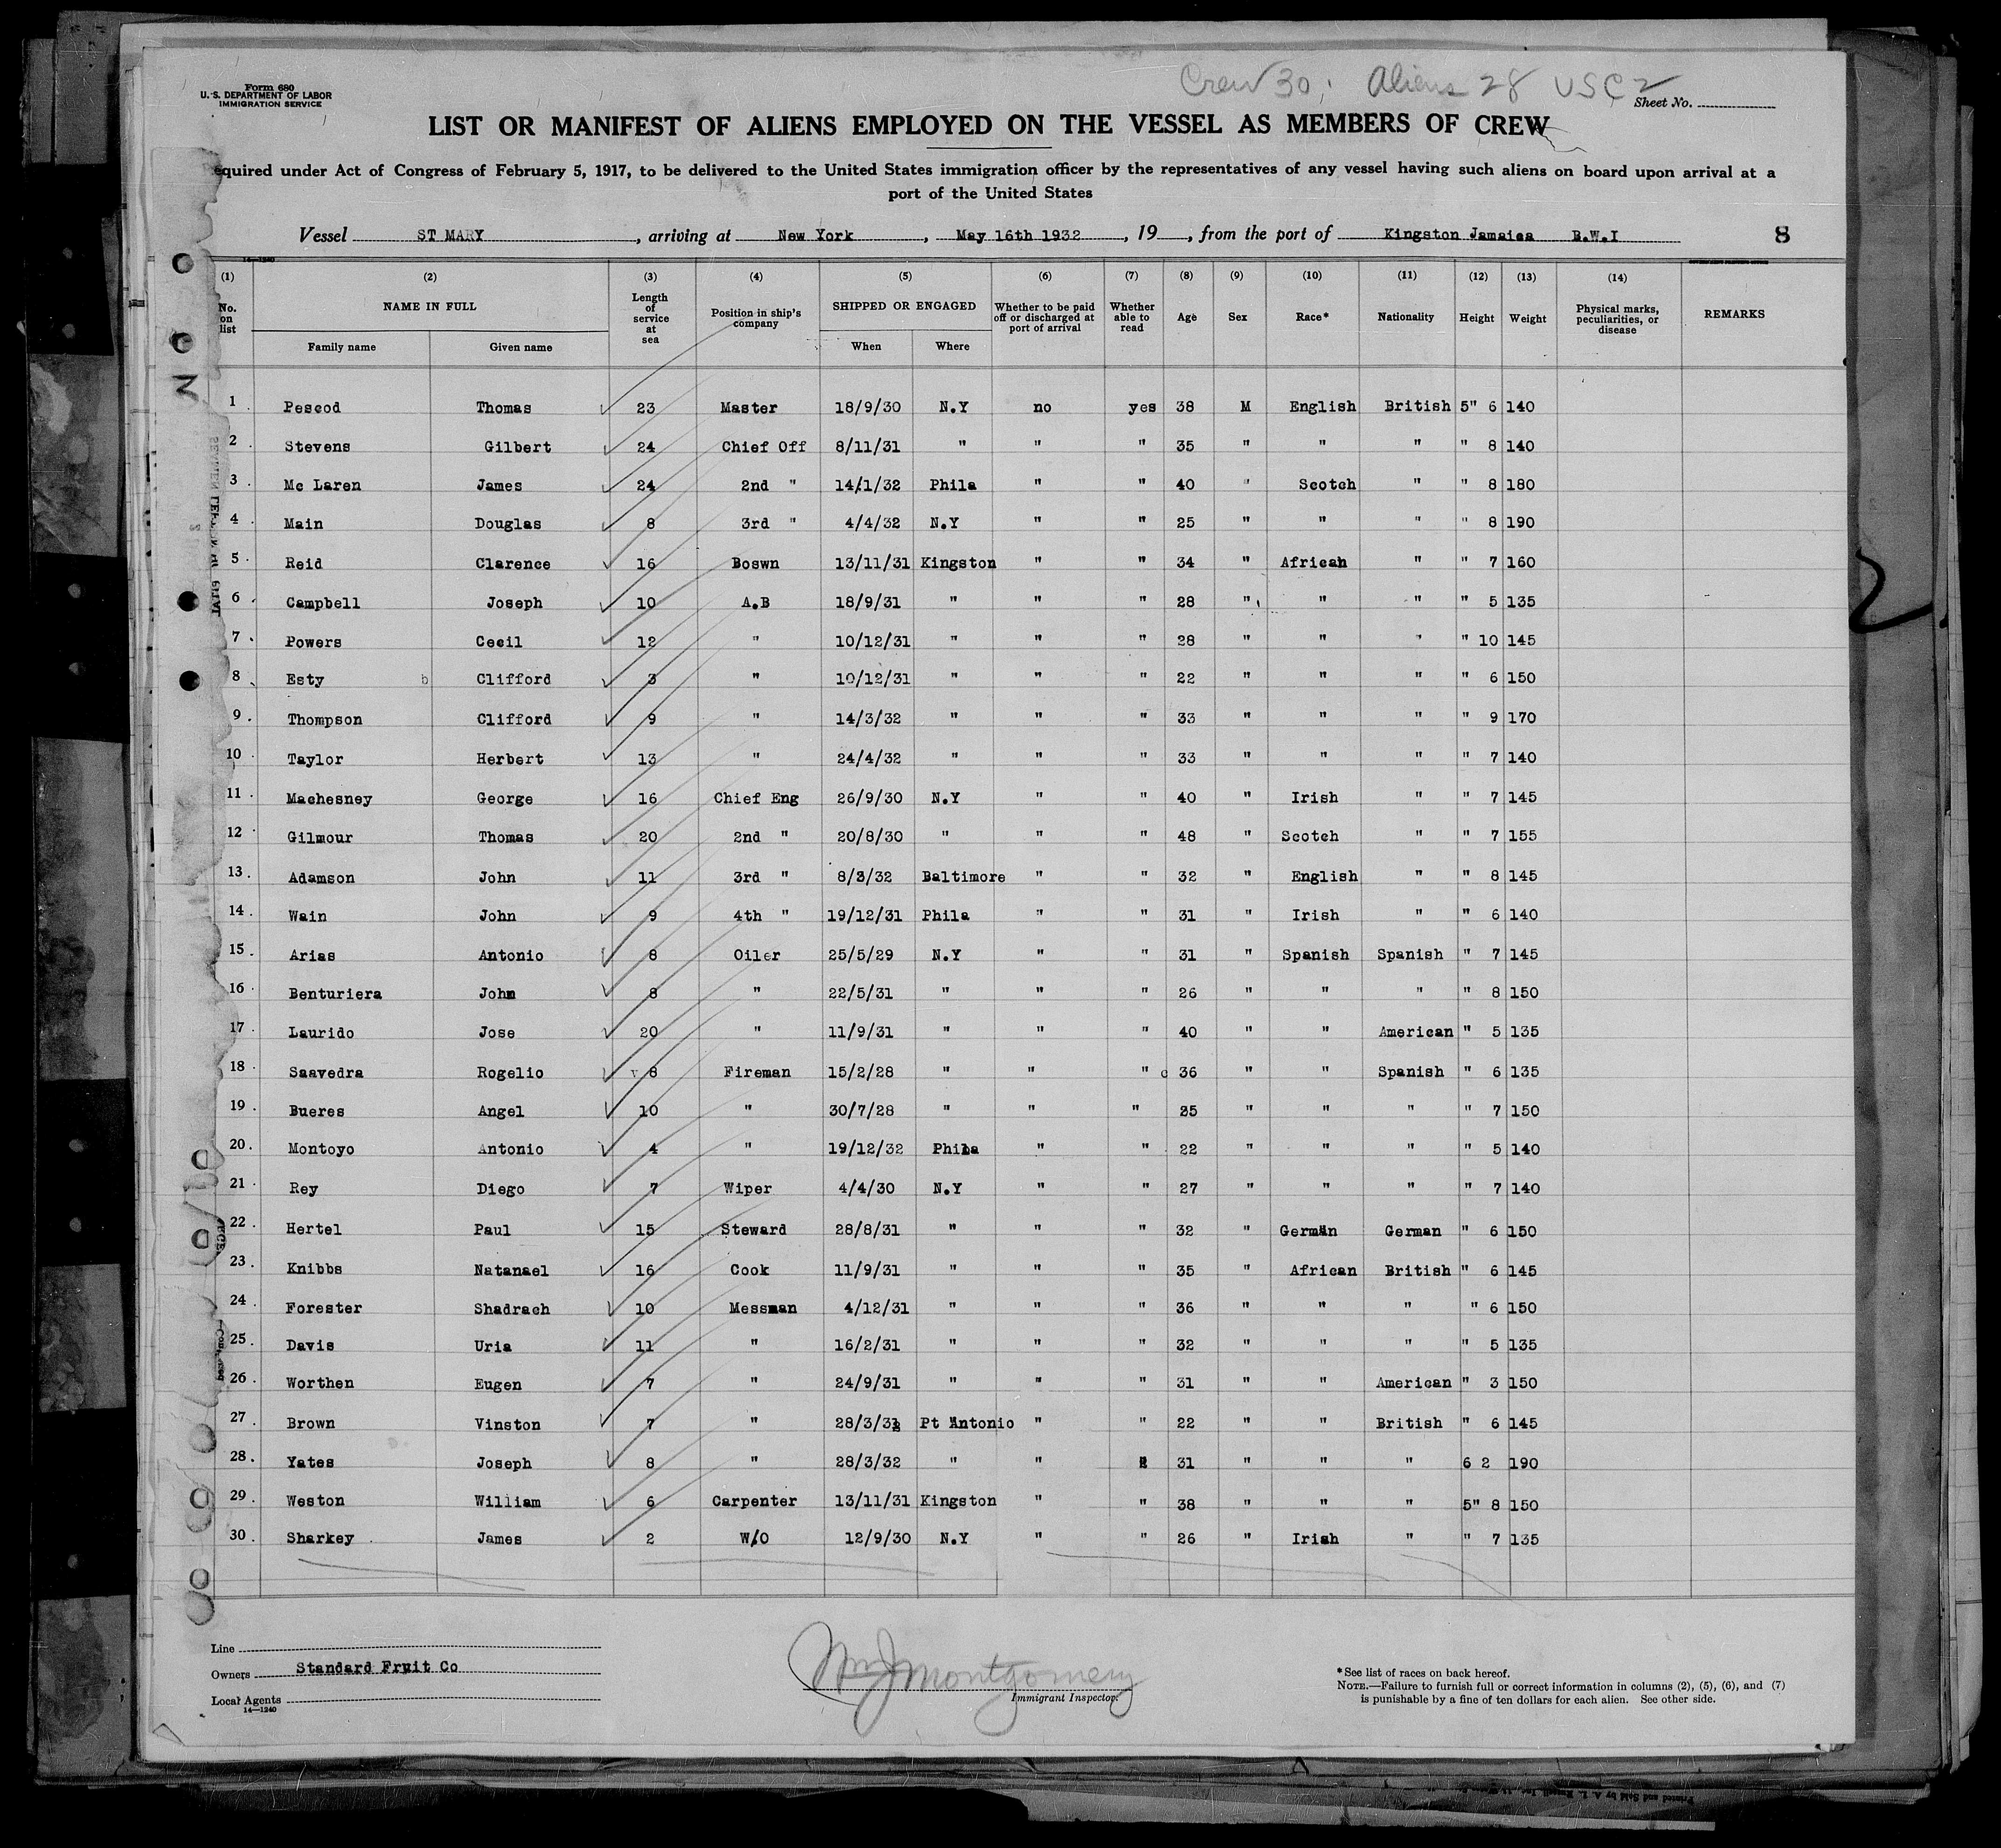 Crew 30; Aliens 28 USC 2
Form 680
U. S. DEPARTMENT OF LABOR
IMMIGRATION SERVICE
Sheet No.
LIST OR MANIFEST OF ALIENS EMPLOYED ON THE VESSEL AS MEMBERS OF CREW
equired under Act of Congress of February 5, 1917, to be delivered to the United States immigration officer by the representatives of any vessel having such aliens on board upon arrival at a
port of the United States
Vessel ST MARY, arriving at New York, May 16th 1932, 19, from the port of Kingston Jamaica B.W.I 8
14—1240
(1) (2) (3) (4) (5) (6) (7) (8) (9) (10) (11) (12) (13) (14)
No. on list NAME IN FULL Length of service at sea Position in ship's company SHIPPED OR ENGAGED Whether to be paid off or discharged at port of arrival Whether able to read Age Sex Race* Nationality Height Weight Physical marks, peculiarities, or disease REMARKS
Family name Given name When Where
1 Pescod Thomas 23 Master 18/9/30 N.Y no yes 38 M English British 5" 6 140
2 Stevens Gilbert 24 Chief Off 8/11/31 " " " 35 " " " " 8 140
3 Mc Laren James 24 2nd " 14/1/32 Phila " " 40 " Scotch " " 8 180
4 Main Douglas 8 3rd " 4/4/32 N.Y " " 25 " " " " 8 190
5 Reid Clarence 16 Boswn 13/11/31 Kingston " " 34 " African " " 7 160
6 Campbell Joseph 10 A.B 18/9/31 " " " 28 " " " " 5 135
7 Powers Cecil 12 " 10/12/31 " " " 28 " " " " 10 145
8 Esty b Clifford 3 " 10/12/31 " " " 22 " " " " 6 150
9 Thompson Clifford 9 " 14/3/32 " " " 33 " " " " 9 170
10 Taylor Herbert 13 " 24/4/32 " " " 33 " " " " 7 140
11 Machesney George 16 Chief Eng 26/9/30 N.Y " " 40 " Irish " " 7 145
12 Gilmour Thomas 20 2nd " 20/8/30 " " " 48 " Scotch " " 7 155
13 Adamson John 11 3rd " 8/3/32 Baltimore " " 32 " English " " 8 145
14 Wain John 9 4th " 19/12/31 Phila " " 31 " Irish " " 6 140
15 Arias Antonio 8 Oiler 25/5/29 N.Y " " 31 " Spanish Spanish " 7 145
16 Benturiera John 8 " 22/5/31 " " " 26 " " " " 8 150
17 Laurido Jose 20 " 11/9/31 " " " 40 " " American " 5 135
18 Saavedra Rogelio 8 Fireman 15/2/28 " " " 36 " " Spanish " 6 135
19 Bueres Angel 10 " 30/7/28 " " " 25 " " " " 7 150
20 Montoyo Antonio 4 " 19/12/32 Phila " " 22 " " " " 5 140
21 Rey Diego 7 Wiper 4/4/30 N.Y " " 27 " " " " 7 140
22 Hertel Paul 15 Steward 28/8/31 " " " 32 " German German " 6 150
23 Knibbs Natanael 16 Cook 11/9/31 " " " 35 " African British " 6 145
24 Forester Shadrach 10 Messman 4/12/31 " " " 36 " " " " 6 150
25 Davis Uria 11 " 16/2/31 " " " 32 " " " " 5 135
26 Worthen Eugen 7 " 24/9/31 " " " 31 " " American " 3 150
27 Brown Vinston 7 " 28/3/32 Pt Antonio " " 22 " " British " 6 145
28 Yates Joseph 8 " 28/3/32 " " " 31 " " " 6 2 190
29 Weston William 6 Carpenter 13/11/31 Kingston " " 38 " " " 5" 8 150
30 Sharkey James 2 W/O 12/9/30 N.Y " " 26 " Irish " " 7 135
Line
Owners Standard Fruit Co
Local Agents
14—1240
Wm J Montgomery
Immigrant Inspector.
*See list of races on back hereof.
NOTE.—Failure to furnish full or correct information in columns (2), (5), (6), and (7)
is punishable by a fine of ten dollars for each alien. See other side.